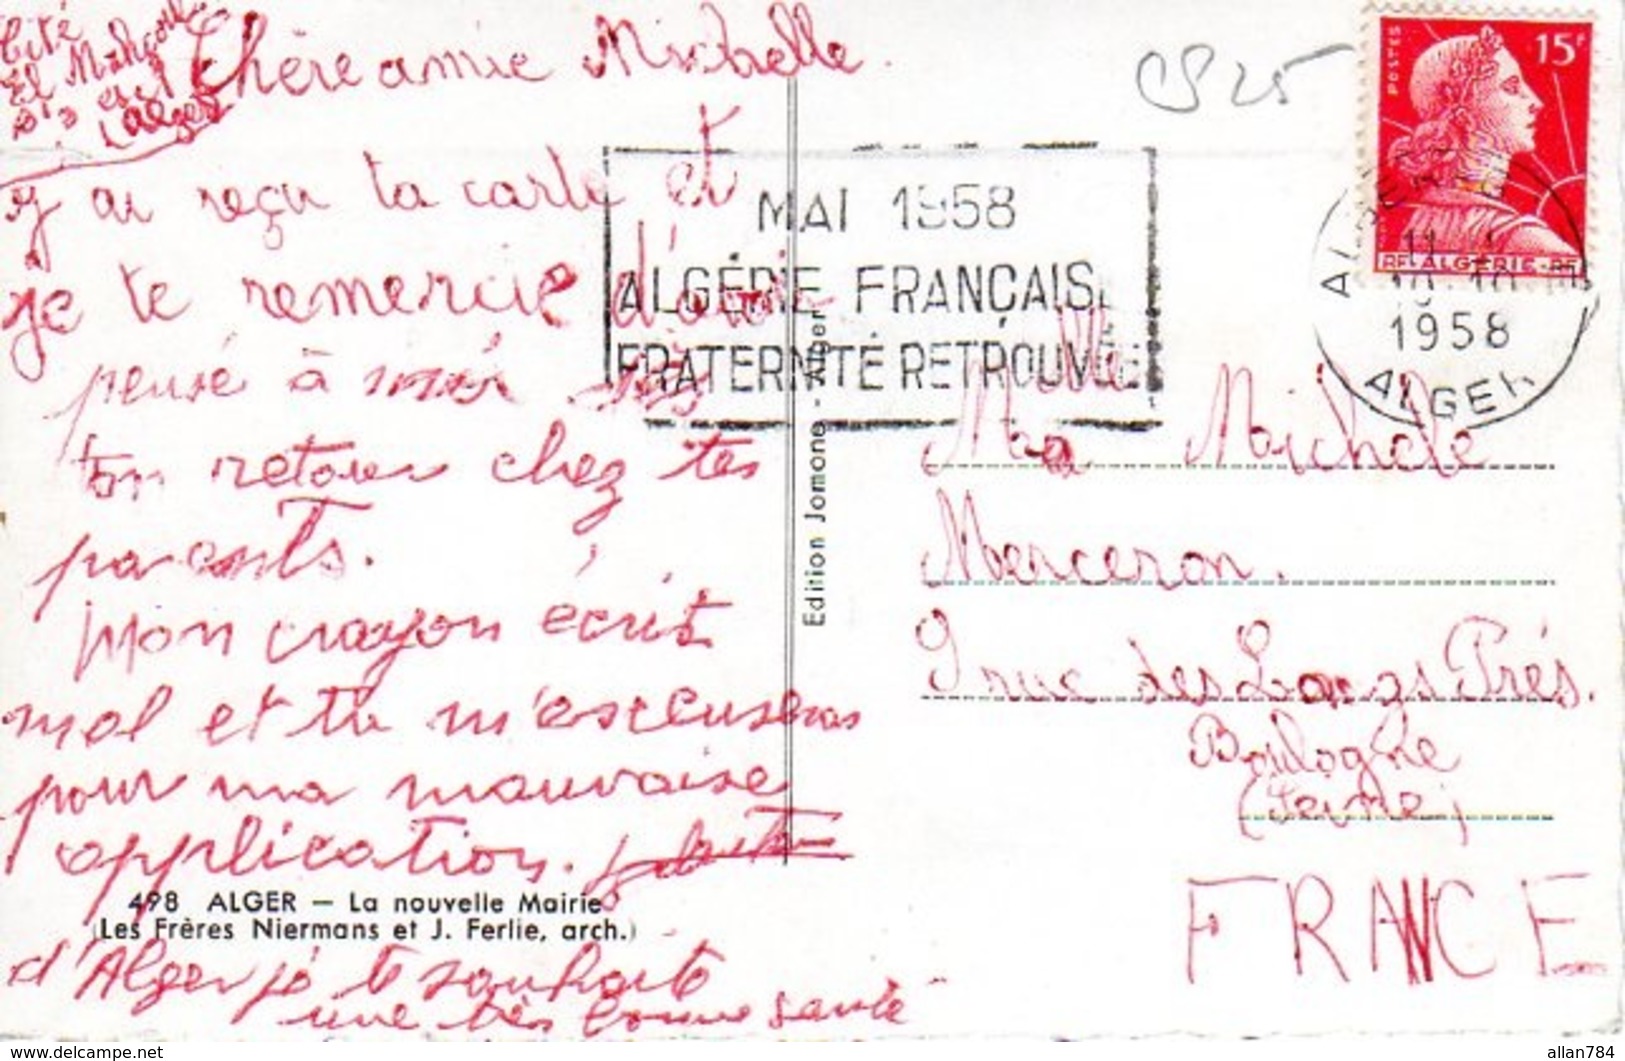 Cité
El
(Alger)
Chère amie Michelle.
j'ai reçu ta carte et
je te remercie d'avoir
pensé à moi dès
ton retour chez tes
parents.
Mon crayon écrit
mal et tu m'excuseras
pour ma mauvaise
application.
498 ALGER — La nouvelle Mairie
(Les Frères Niermans et J. Ferlie, arch.)
d'Alger je te souhaite
une très bonne santé
Edition Jomone - Alger
MAI 1958
ALGÉRIE FRANÇAISE
FRATERNITÉ RETROUVÉE
POSTES
15F
RF ALGERIE RF
1958
ALGER
Mlle
Ma Michele
Merceron.
9 rue des Longs Prés.
Boulogne
(Seine)
FRANCE
www.delcampe.net
allan784